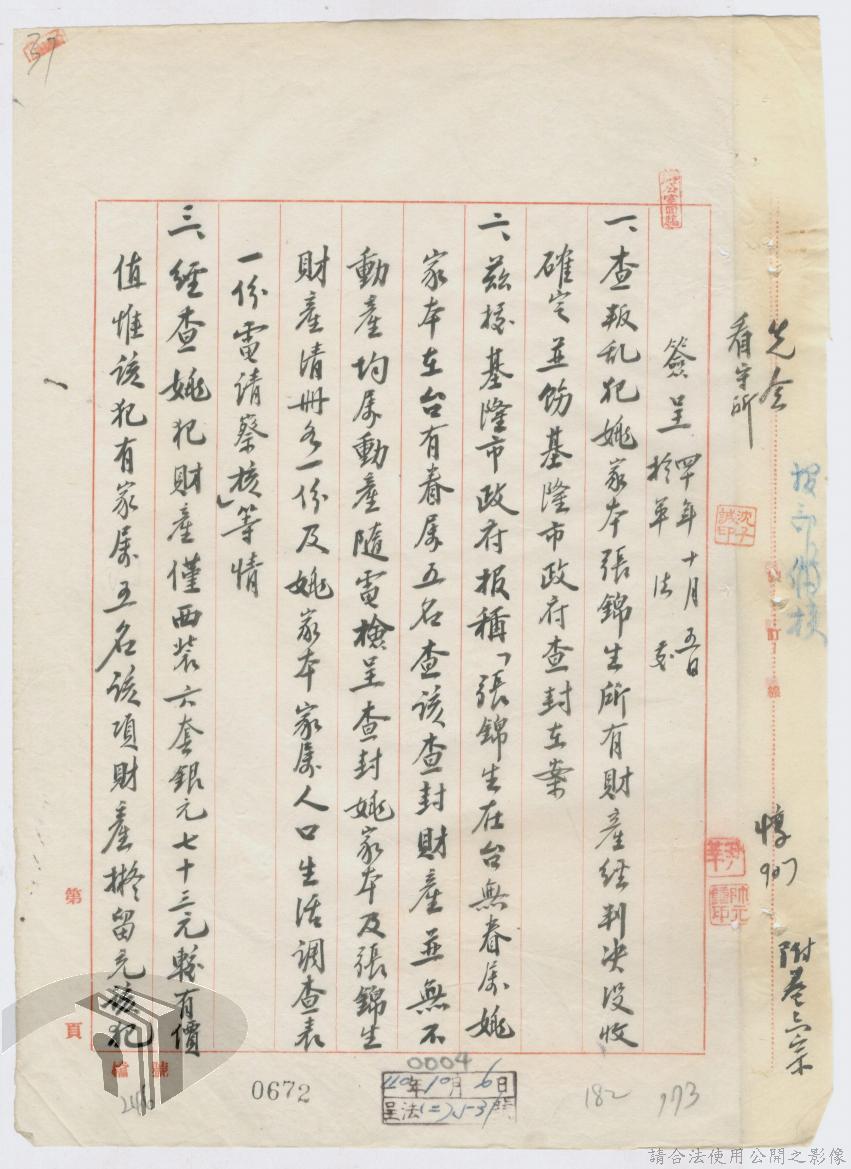 先会
看守所
附卷六宗
簽呈 四十年十月五日
於軍法處
一、查叛乱犯姚家本張錦生所有財產經判决没收
確定並飭基隆市政府查封在案
二、茲據基隆市政府报稱「張錦生在台無眷屬姚
家本在台有眷屬五名查該查封財產並無不
動產均屬動產隨電檢呈查封姚家本及張錦生
財產清册各一份及姚家本家屬人口生活調查表
一份電請察核」等情
三、經查姚犯財產僅西裝六套銀元七十三元較有價
值惟該犯有家屬五名該項財產擬留充該犯
第 頁
檔號
246
0672
0004
40年10月6日
182
173
37
請合法使用公開之影像